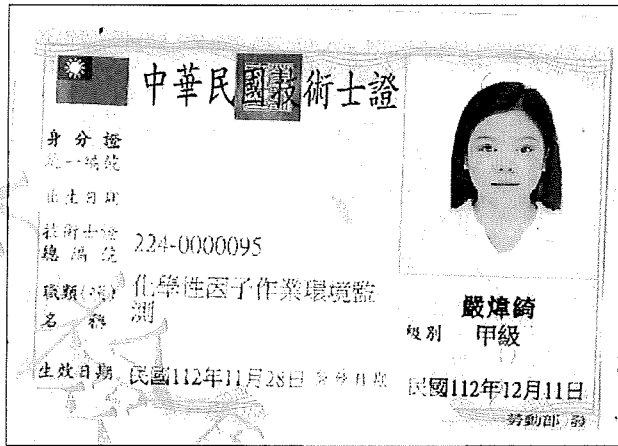 中華民國技術士證
身分證
統一編號
出生日期
技術士證
總編號
224-0000095
職類(項)
名稱
化學性因子作業環境監
測
嚴煒綺
級別 甲級
生效日期 民國112年11月28日 製發日期 民國112年12月11日
勞動部 發